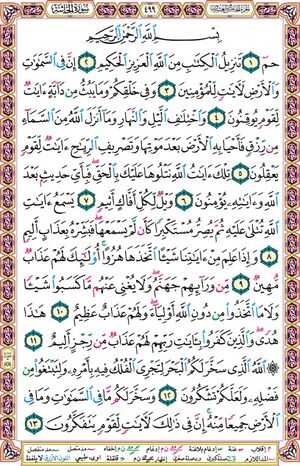 سورة الجاثية ٤٩٩
بِسْمِ اللَّهِ الرَّحْمَٰنِ الرَّحِيمِ
حمٓ ١ تَنزِيلُ الْكِتَابِ مِنَ اللَّهِ الْعَزِيزِ الْحَكِيمِ ٢ إِنَّ فِي السَّمَاوَاتِ
وَالْأَرْضِ لَآيَاتٍ لِّلْمُؤْمِنِينَ ٣ وَفِي خَلْقِكُمْ وَمَا يَبُثُّ مِن دَابَّةٍ آيَاتٌ
لِّقَوْمٍ يُوقِنُونَ ٤ وَاخْتِلَافِ اللَّيْلِ وَالنَّهَارِ وَمَا أَنزَلَ اللَّهُ مِنَ السَّمَاءِ
مِن رِّزْقٍ فَأَحْيَا بِهِ الْأَرْضَ بَعْدَ مَوْتِهَا وَتَصْرِيفِ الرِّيَاحِ آيَاتٌ لِّقَوْمٍ
يَعْقِلُونَ ٥ تِلْكَ آيَاتُ اللَّهِ نَتْلُوهَا عَلَيْكَ بِالْحَقِّ فَبِأَيِّ حَدِيثٍ بَعْدَ
اللَّهِ وَآيَاتِهِ يُؤْمِنُونَ ٦ وَيْلٌ لِّكُلِّ أَفَّاكٍ أَثِيمٍ ٧ يَسْمَعُ آيَاتِ
اللَّهِ تُتْلَىٰ عَلَيْهِ ثُمَّ يُصِرُّ مُسْتَكْبِرًا كَأَن لَّمْ يَسْمَعْهَا فَبَشِّرْهُ بِعَذَابٍ أَلِيمٍ
٨ وَإِذَا عَلِمَ مِنْ آيَاتِنَا شَيْئًا اتَّخَذَهَا هُزُوًا أُولَٰئِكَ لَهُمْ عَذَابٌ
مُّهِينٌ ٩ مِّن وَرَائِهِمْ جَهَنَّمُ وَلَا يُغْنِي عَنْهُم مَّا كَسَبُوا شَيْئًا
وَلَا مَا اتَّخَذُوا مِن دُونِ اللَّهِ أَوْلِيَاءَ وَلَهُمْ عَذَابٌ عَظِيمٌ ١٠ هَٰذَا
هُدًى وَالَّذِينَ كَفَرُوا بِآيَاتِ رَبِّهِمْ لَهُمْ عَذَابٌ مِّن رِّجْزٍ أَلِيمٌ ١١
اللَّهُ الَّذِي سَخَّرَ لَكُمُ الْبَحْرَ لِتَجْرِيَ الْفُلْكُ فِيهِ بِأَمْرِهِ وَلِتَبْتَغُوا مِن
فَضْلِهِ وَلَعَلَّكُمْ تَشْكُرُونَ ١٢ وَسَخَّرَ لَكُم مَّا فِي السَّمَاوَاتِ وَمَا فِي
الْأَرْضِ جَمِيعًا مِّنْهُ إِنَّ فِي ذَٰلِكَ لَآيَاتٍ لِّقَوْمٍ يَتَفَكَّرُونَ ١٣